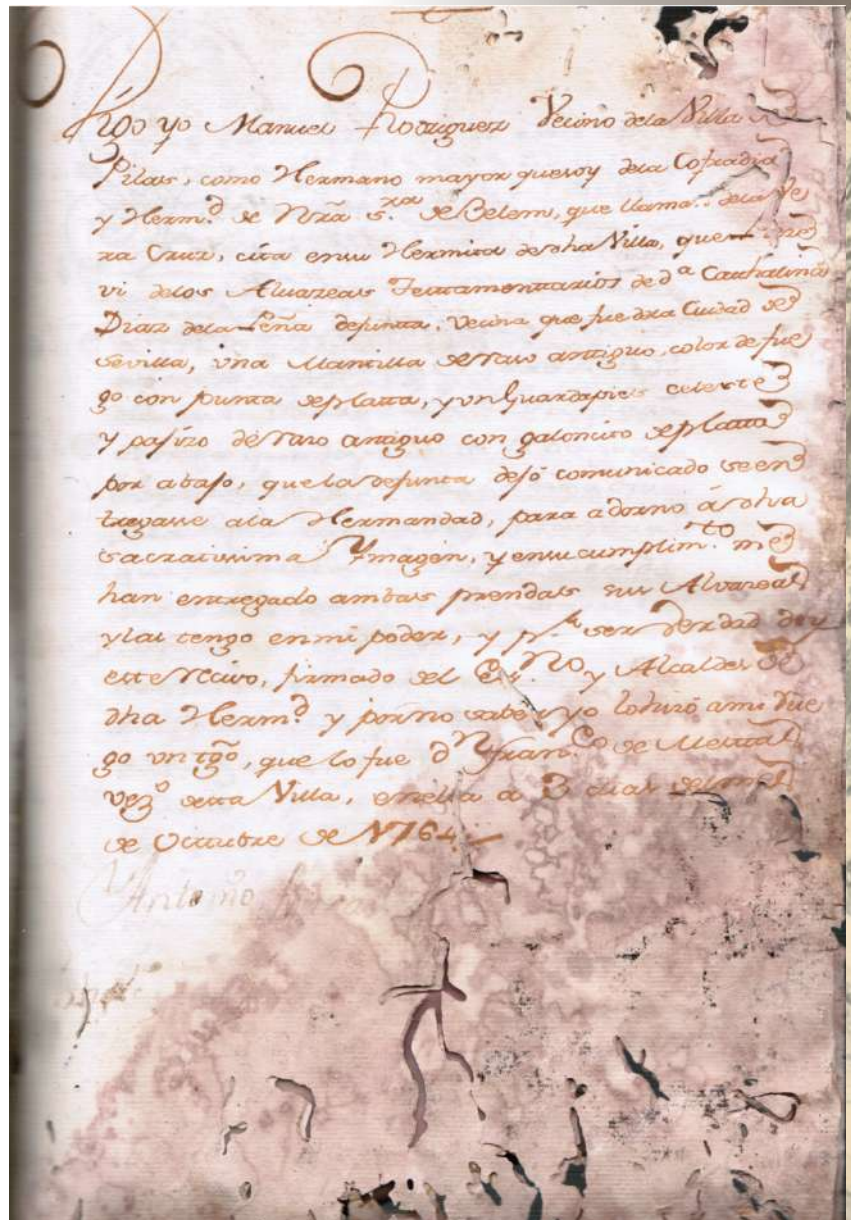 Digo yo Manuel Rodriguez Vecino dela Villa de
Pilas, como Hermano mayor que soy dela Cofradia
y Herm.d de Nrã S.ra de Belem, que llaman dela Ve
ra Cruz, cita en su Hermita de dha Villa, que reze
vi delos Alvazeas Testamentarios de d.a Cathalina
Diaz dela Peña defunta, Vecina que fue dela Ciudad de
Sevilla, vna Mantilla de raso antiguo, color de fue
go con punta de platta, y vn Guardapies celeste
y pajizo de raso antiguo con galoncito de platta
por abajo, que la defunta dejó comunicado se en
tregasse ala Hermandad, para adorno á dha
Sacratissima Ymagen, y en su cumplim.to me
han entregado ambas prendas sus Alvazeas
y las tengo en mi poder, y p.r ser verdad doy
este recivo, firmado del Es.no y Alcaldes de
dha Herm.d y por no saber yo lo firmó a mi rue
go vn tgõ, que lo fue D.n Fran.co de
vez.o desta Villa, en ella a 3 dias del mes
de Octubre de 1764.
Antonio